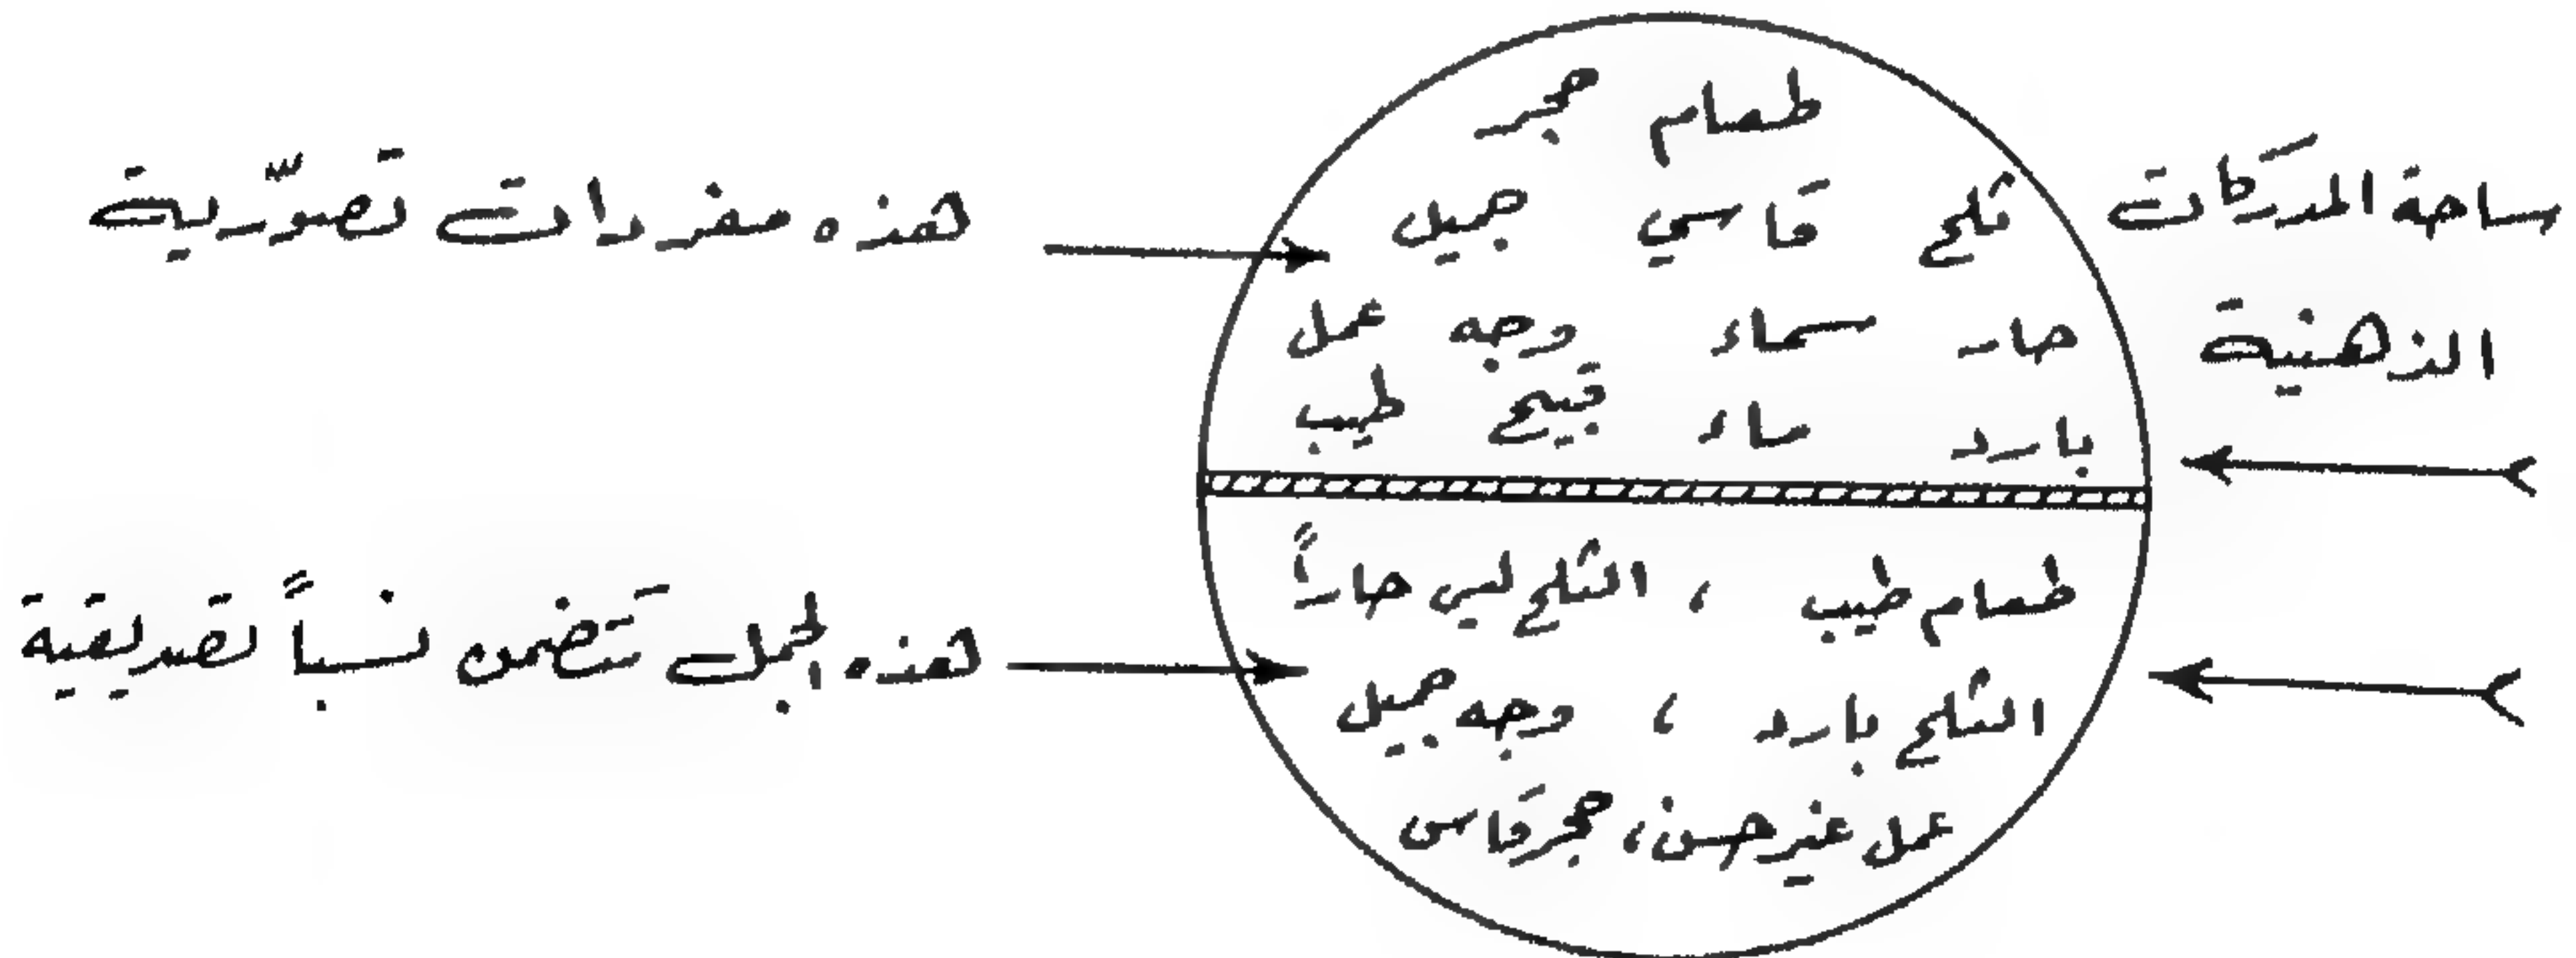 ساحة المدركات
الذهنية
طعام حجر
ثلج قاسي جميل
حار سماء وجه عمل
بارد ماء قبيح طيب
هذه مفردات تصوّرية
طعام طيب ، الثلج ليس حاراً
الثلج بارد ، وجه جميل
عمل غير حسن، حجر قاس
هذه الجمل تتضمن نسباً تصديقية